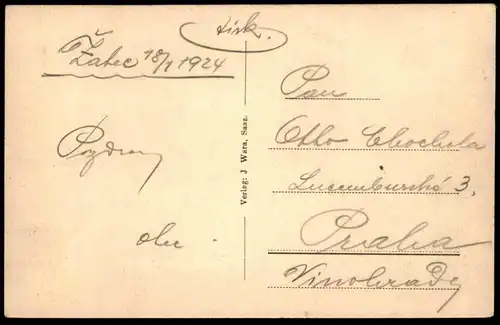 tisk.
Žatec 18/I 1924
Pozdrav
Verlag: J. Wara, Saaz.
Pan
Otto Chochola
Lucemburská 3,
Praha
Vinohrady